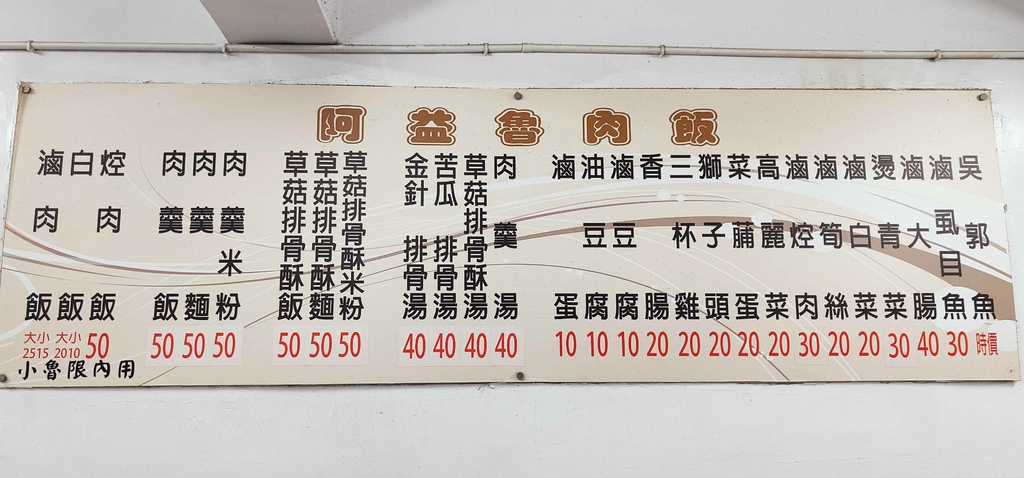 阿益魯肉飯
滷肉飯 大小 2515
白飯 大小 2010
焢肉飯 50
肉羹飯 50
肉羹麵 50
肉羹米粉 50
草菇排骨酥飯 50
草菇排骨酥麵 50
草菇排骨酥米粉 50
金針排骨湯 40
苦瓜排骨湯 40
草菇排骨酥湯 40
肉羹湯 40
滷蛋 10
油豆腐 10
滷豆腐 10
香腸 20
三杯雞 20
獅子頭 20
菜蒲蛋 20
高麗菜 20
滷焢肉 30
滷筍絲 20
滷白菜 20
燙青菜 30
滷大腸 40
滷虱目魚 30
吳郭魚 時價
小魯限內用